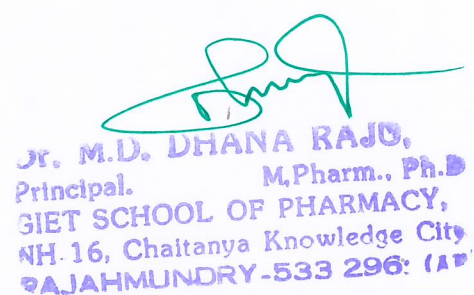 Dr. M.D. DHANA RAJU,
Principal. M.Pharm., Ph.D
GIET SCHOOL OF PHARMACY,
NH-16, Chaitanya Knowledge City,
RAJAHMUNDRY-533 296: (AP